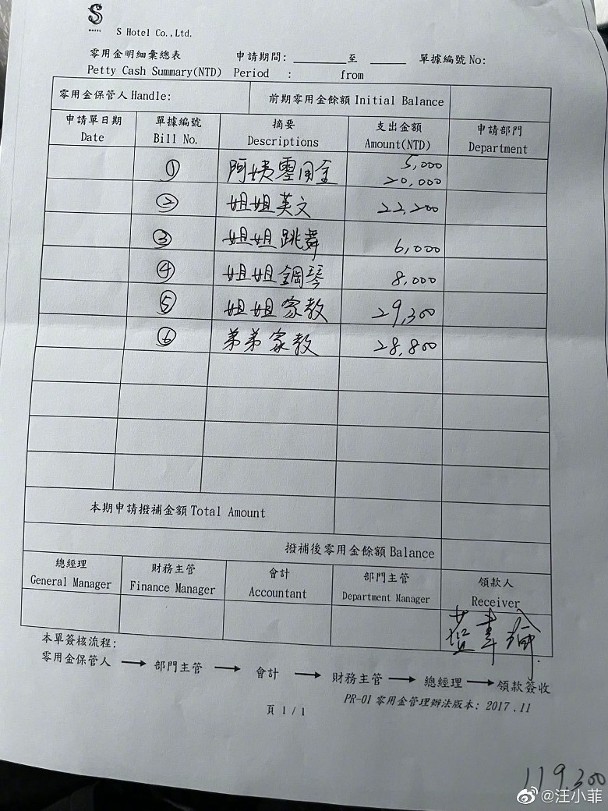 S
S Hotel Co.,Ltd.
零用金明細彙總表 申請期間: ______至______ 單據編號 No:
Petty Cash Summary(NTD) Period : from
零用金保管人 Handle: 前期零用金餘額 Initial Balance
申請單日期 單據編號 摘要 支出金額 申請部門
Date Bill No. Descriptions Amount(NTD) Department
① 阿姨零用金 5,000
20,000
② 姐姐英文 22,200
③ 姐姐跳舞 6,000
④ 姐姐鋼琴 8,000
⑤ 姐姐家教 29,300
⑥ 弟弟家教 28,800
本期申請撥補金額 Total Amount
撥補後零用金餘額 Balance
總經理 財務主管 會計 部門主管 領款人
General Manager Finance Manager Accountant Department Manager Receiver
本單簽核流程:
零用金保管人 → 部門主管 → 會計 → 財務主管 → 總經理 → 領款簽收
PR-01 零用金管理辦法版本: 2017.11
頁 1/1
119300
@汪小菲